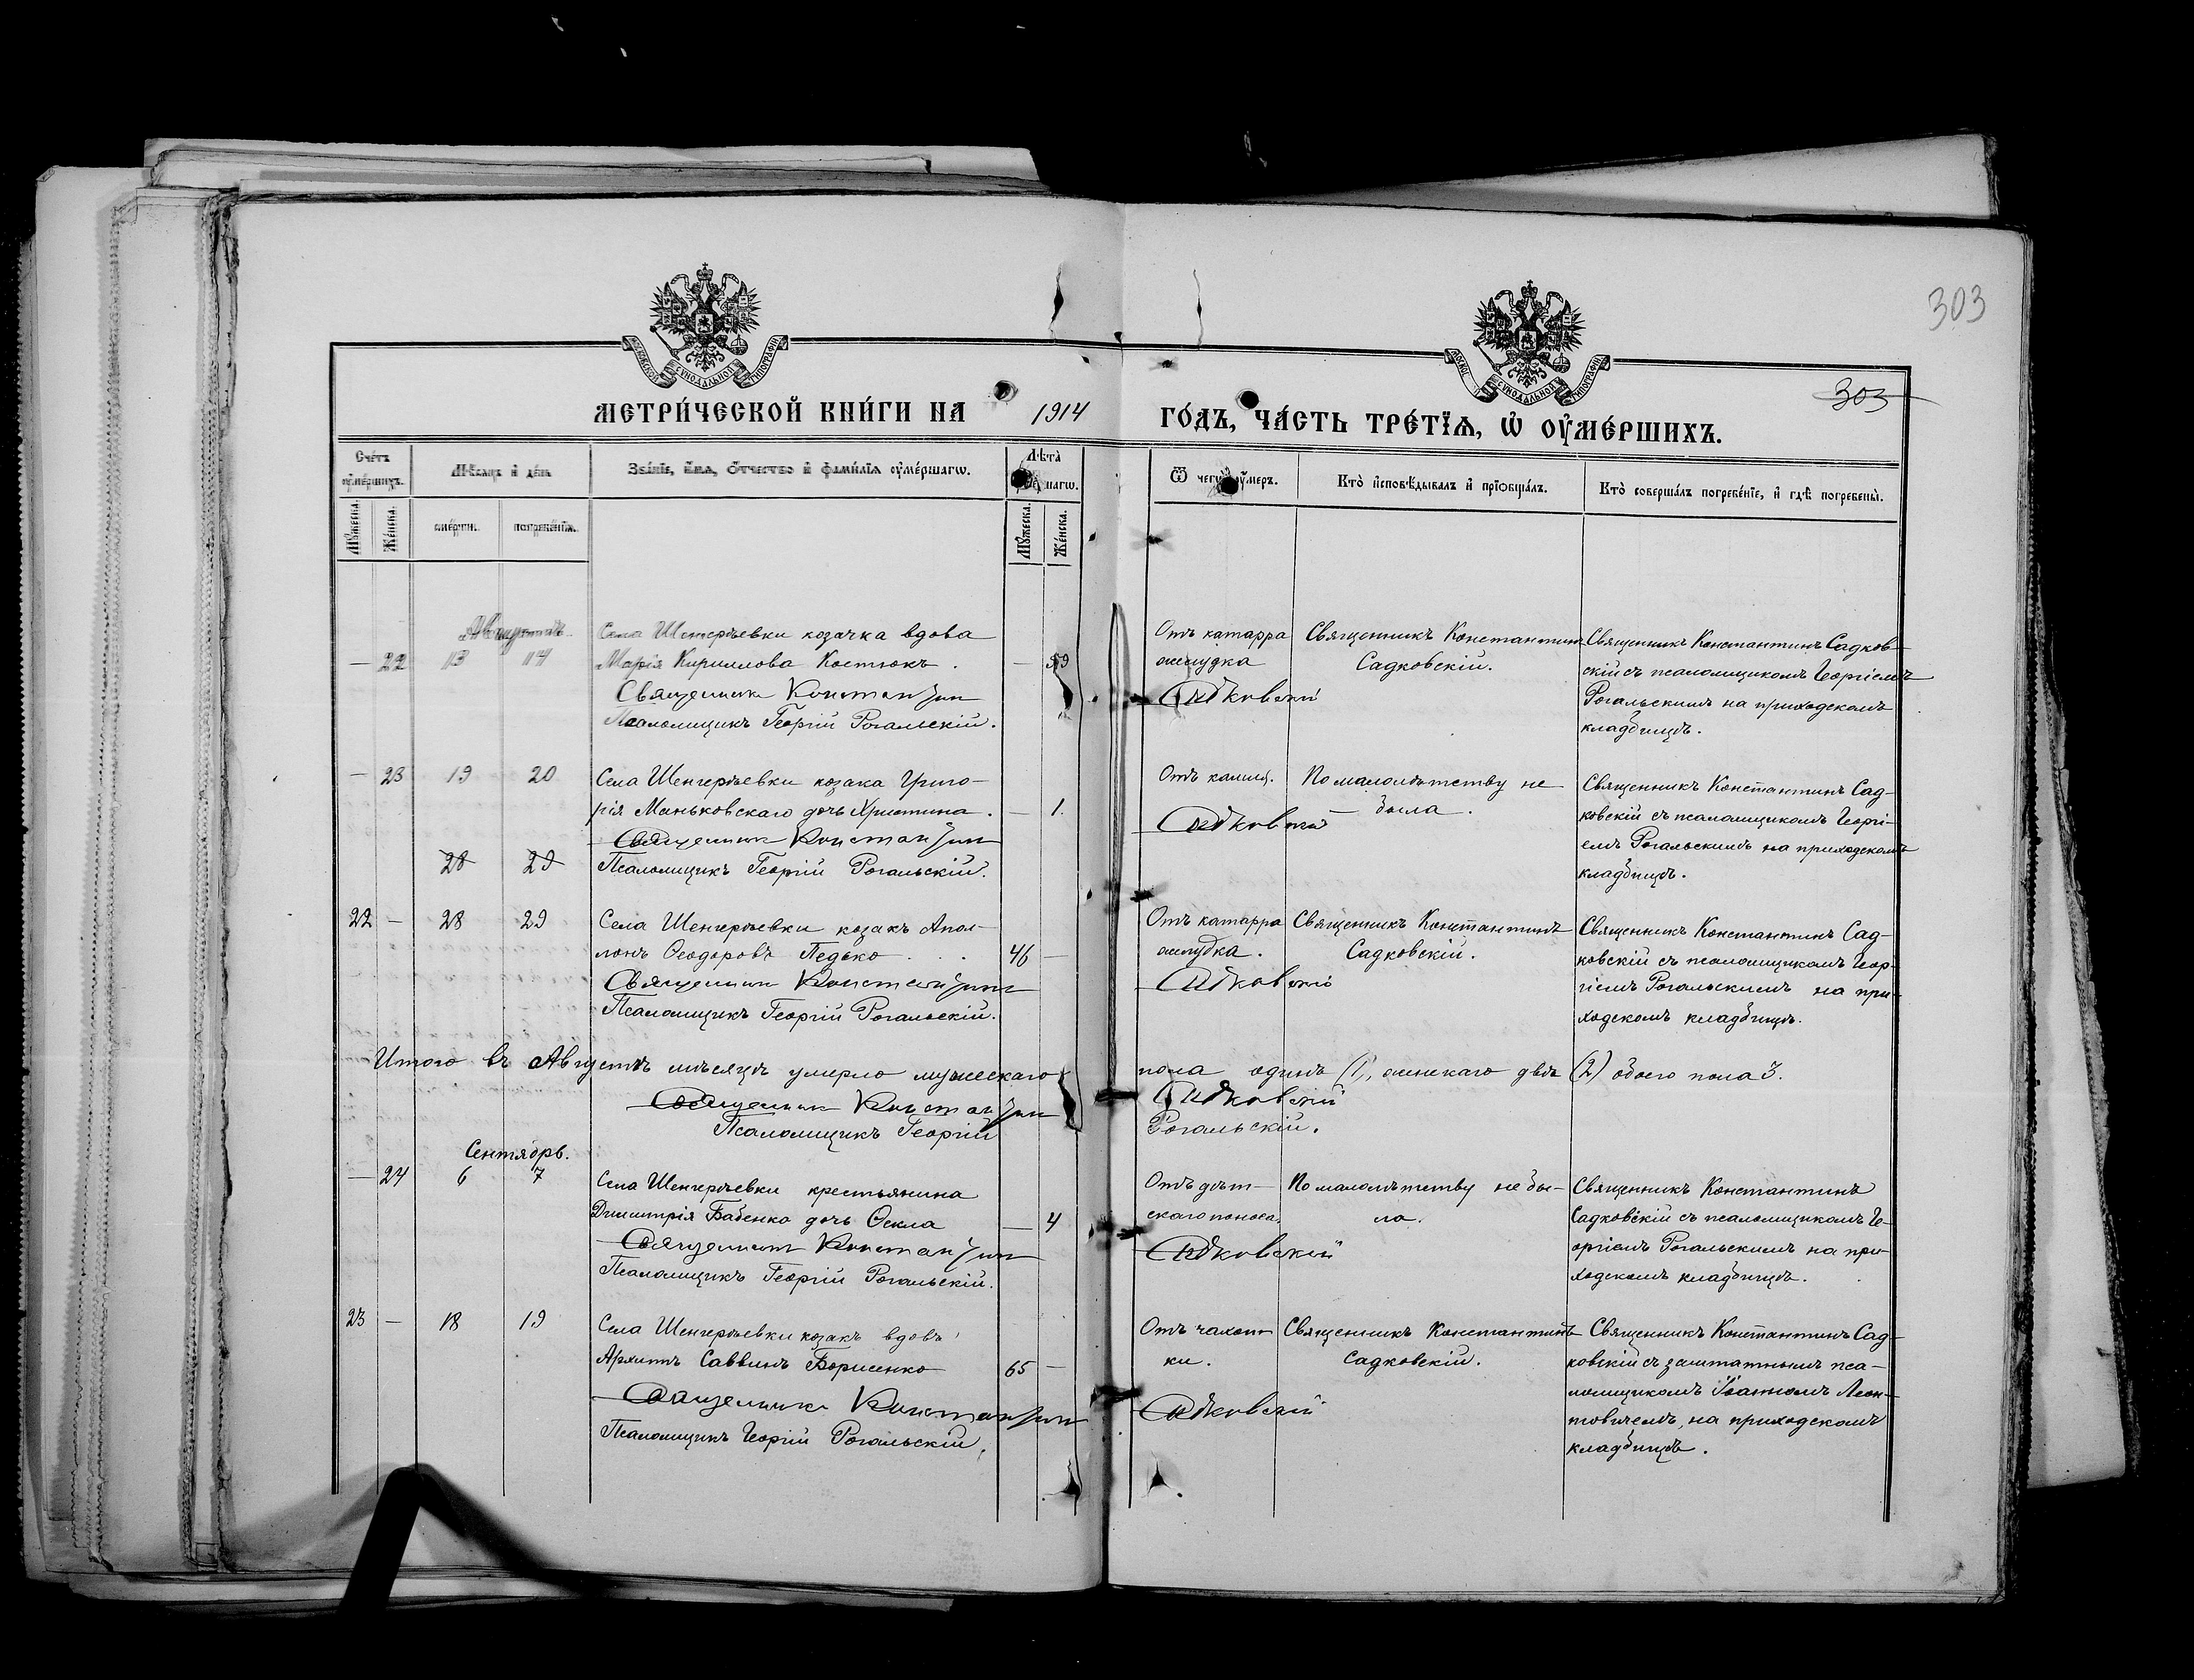 303
303
МЕТРИ́ЧЕСКОЙ КНИ́ГИ НА 1914 ГО́ДЪ, ЧА́СТЬ ТРЕ́ТЇѦ, Ѡ҆ ОУ҆МЕ́РШИХЪ.
Сче́тъ оу҆ме́ршихъ.
Мѣ́сяцъ и҆ де́нь
Зва́нїе, и҆́мя, ѻ҆́тчество и҆ фами́лїя оу҆ме́ршагѡ.
Лѣ́та
Ѿ чегѡ̀ оу҆́меръ.
Кто̀ и҆сповѣ́дывалъ и҆ прїѡбща́лъ.
Кто̀ соверша́лъ погребе́нїе, и҆ гдѣ̀ погребены̀.
Мꙋ́жеска.
Же́нска.
сме́рти.
погребе́нїя.
Мꙋ́жеска.
Же́нска.
Августъ.
— 22 13 14
Села Шенгеріевки козачка вдова
Марія Кириллова Костюкъ. — 59
Священникъ Константин Садковскій
Псаломщикъ Георгій Рогальскій.
Отъ катарра
желудка
Священникъ Константинъ
Садковскій.
Священникъ Константинъ Садков-
скій съ псаломщикомъ Георгіемъ
Рогальскимъ на приходскомъ
кладбищѣ.
— 23 19 20
Села Шенгеріевки козака Григо-
рія Маньковскаго дочь Христина. — 1.
Священникъ Константин Садковскій
28 29
Псаломщикъ Георгій Рогальскій.
Отъ кашля.
По малолѣтству не
была.
Священникъ Константинъ Сад-
ковскій съ псаломщикомъ Георгі-
емъ Рогальскимъ на приходскомъ
кладбищѣ.
22 — 28 29
Села Шенгеріевки козакъ Апол-
лонъ Ѳеодоровъ Педько . . . 46 —
Священникъ Константин Садковскій
Псаломщикъ Георгій Рогальскій.
Отъ катарра
желудка.
Священникъ Константинъ
Садковскій.
Священникъ Константинъ Сад-
ковскій съ псаломщикомъ Геор-
гіемъ Рогальскимъ на при-
ходскомъ кладбищѣ.
Итого въ Августѣ мѣсяцѣ умерло мужескаго пола одинъ (1), женскаго двѣ (2) обоего пола 3.
Священникъ Константин Садковскій
Псаломщикъ Георгій Рогальскій.
Сентябрь.
— 24 6 7
Села Шенгеріевки крестьянина
Димитрія Бабенко дочь Ѳекла — 4
Священникъ Константин Садковскій
Псаломщикъ Георгій Рогальскій.
Отъ дѣт-
скаго поноса.
По малолѣтству не бы-
ла.
Священникъ Константинъ
Садковскій съ псаломщикомъ Ге-
оргіемъ Рогальскимъ на при-
ходскомъ кладбищѣ.
23 — 18 19
Села Шенгеріевки козакъ вдовъ
Архипъ Саввинъ Борисенко 65 —
Священникъ Константин Садковскій
Псаломщикъ Георгій Рогальскій.
Отъ чахот-
ки.
Священникъ Константинъ
Садковскій.
Священникъ Константинъ Сад-
ковскій съ заштатнымъ пса-
ломщикомъ Іоанномъ Леон-
товичемъ, на приходскомъ
кладбищѣ.